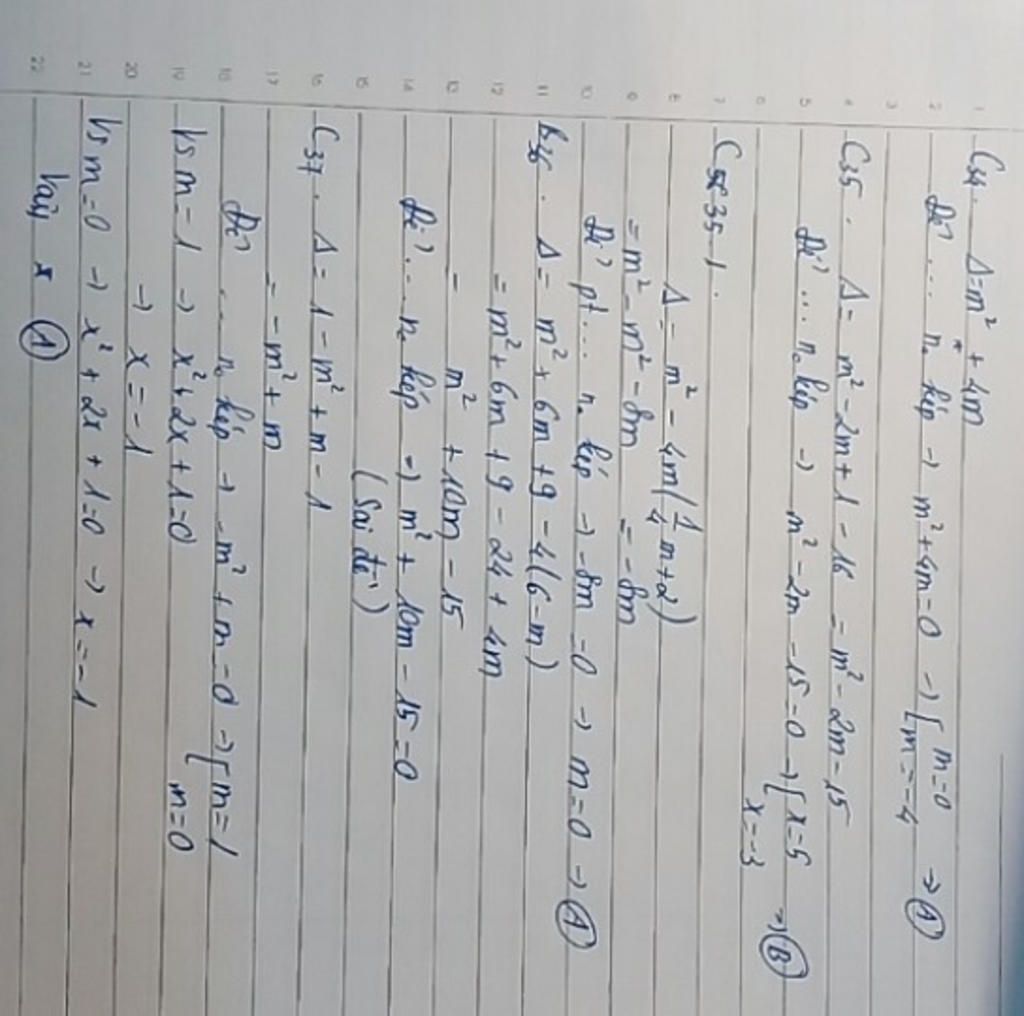 C34. Δ = m² + 4m
Để ... n₀ kép → m² + 4m = 0 → [ m = 0
m = -4 → Ⓐ
C35. Δ = m² - 2m + 1 - 16 = m² - 2m - 15
Để ... n₀ kép → m² - 2m - 15 = 0 → [ x = 5
x = -3 → Ⓑ
C 35-1.
Δ = m² - 4m(1/4 m + 2)
= m² - m² - 8m = -8m
Để pt ... n₀ kép → -8m = 0 → m = 0 → Ⓐ
36. Δ = m² + 6m + 9 - 4(6 - m)
= m² + 6m + 9 - 24 + 4m
= m² + 10m - 15
Để ... n₀ kép → m² + 10m - 15 = 0
(Sai đề)
C37. Δ = 1 - m² + m - 1
= -m² + m
Để ... n₀ kép → -m² + m = 0 → [ m = 1
m = 0
Vs m = 1 → x² + 2x + 1 = 0
→ x = -1
Vs m = 0 → x² + 2x + 1 = 0 → x = -1
Vậy Ⓐ
1
2
3
4
5
6
7
8
9
10
11
12
13
14
15
16
17
18
19
20
21
22